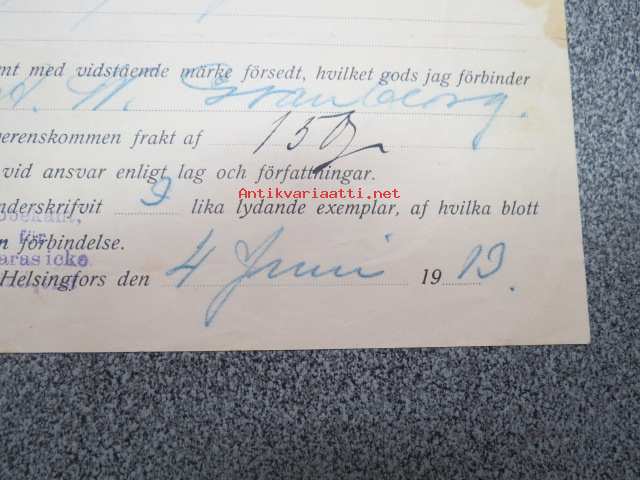 mt med vidstående märke försedt, hvilket gods jag förbinder
W. Granberg.
verenskommen frakt af 150
vid ansvar enligt lag och författningar.
Antikvariaatti.net
nderskrifvit 3 lika lydande exemplar, af hvilka blott
för
n förbindelse.
aras icke
Helsingfors den 4 Juni 1913.